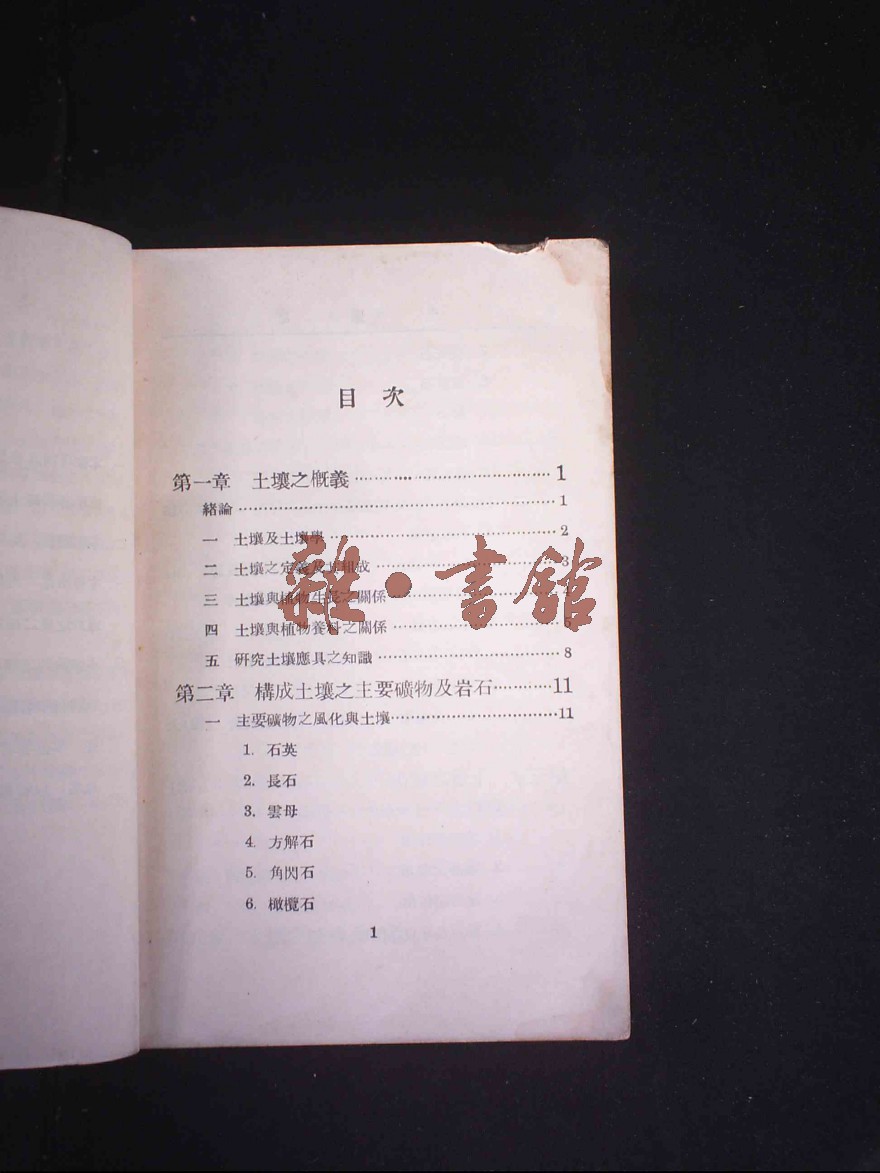 目 次
第一章 土壤之概義 1
緒論 1
一 土壤及土壤學 2
二 土壤之定義及其組成 3
三 土壤與植物生長之關係
四 土壤與植物養料之關係 6
五 研究土壤應具之知識 8
第二章 構成土壤之主要礦物及岩石 11
一 主要礦物之風化與土壤 11
1. 石英
2. 長石
3. 雲母
4. 方解石
5. 角閃石
6. 橄欖石
1
雜·書館